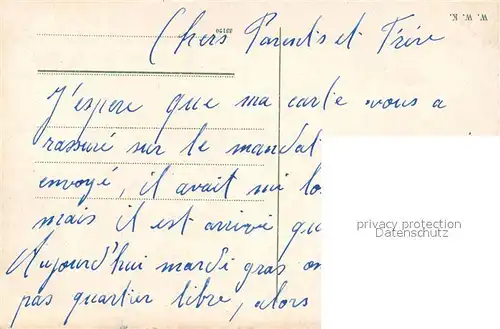 W. W. K.
38150
Chers Parents et Frère
J'espere que ma carte vous a
rassuré sur le mandat
envoyé, il avait mi lo
mais il est arrivé qu
privacy protection
Datenschutz
Aujourd'hui mardi gras on
pas quartier libre, alors